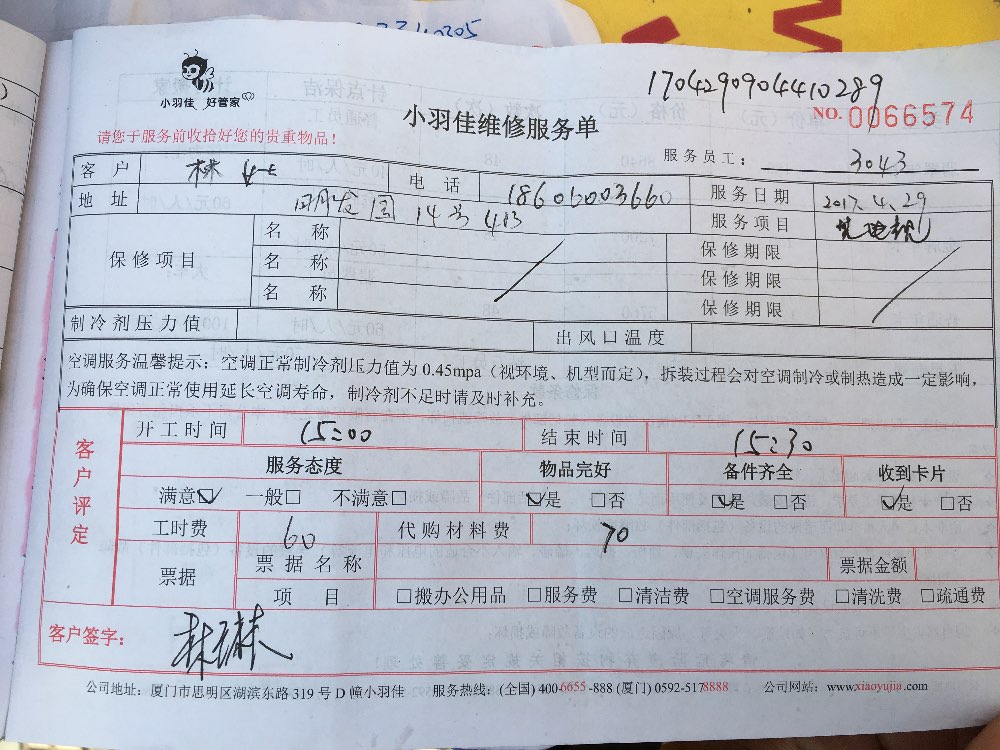 小羽佳 好管家
1704290904410289
NO.0066574
小羽佳维修服务单
请您于服务前收拾好您的贵重物品！
服务员工： 3043
客户 林女士 电话 18606003660 服务日期 2017.4.29
地址 明发园 14号 413 服务项目
保修项目 名称 保修期限
名称 保修期限
名称 保修期限
制冷剂压力值 出风口温度
空调服务温馨提示：空调正常制冷剂压力值为 0.45mpa（视环境、机型而定），拆装过程会对空调制冷或制热造成一定影响，
为确保空调正常使用延长空调寿命，制冷剂不足时请及时补充。
客户评定
开工时间 15:00 结束时间 15:30
服务态度 物品完好 备件齐全 收到卡片
满意☑ 一般□ 不满意□ ☑是 □否 ☑是 □否 ☑是 □否
工时费 60 代购材料费 70
票据 票据名称 票据金额
项目 □搬办公用品 □服务费 □清洁费 □空调服务费 □清洗费 □疏通费
客户签字： 林琳
公司地址：厦门市思明区湖滨东路 319 号 D 幢小羽佳 服务热线：(全国) 400-6655-888 (厦门) 0592-5178888 公司网站：www.xiaoyujia.com